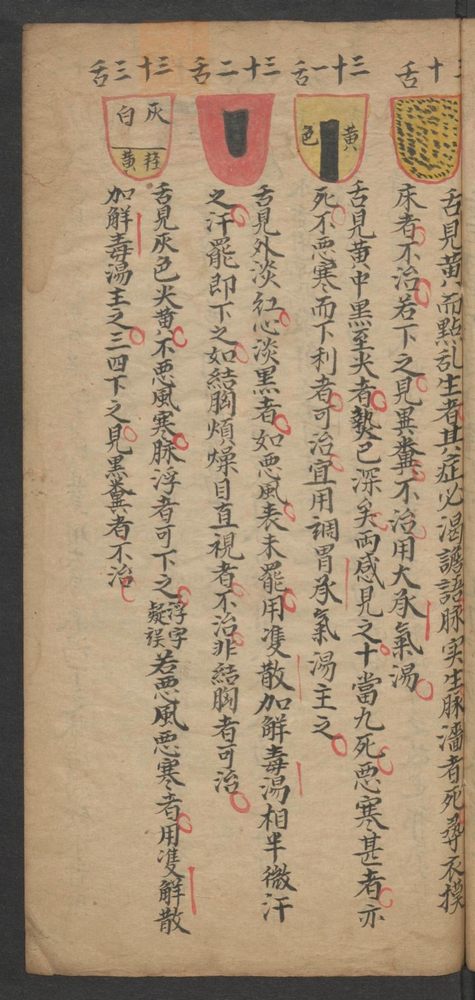 三十舌
舌見黄而點乱生者其症必渴譫語脉实生脉濇者死尋衣摸
床者不治若下之見異糞不治用大承氣湯
三十一舌
黄色
舌見黄中黒至尖者熱已深矣两感見之十當九死悪寒甚者亦
死不悪寒而下利者可治宜用調胃承氣湯主之
三十二舌
舌見外淡红心淡黒者如悪風表未罷用䨇散加解毒湯相半微汗
之汗罷即下之如結胸煩燥目直視者不治非結胸者可治
三十三舌
灰白
黄
舌見灰色尖黄不悪風寒脉浮者可下之浮字疑误若悪風悪寒者用䨇解散
加解毒湯主之三四下之見黒糞者不治